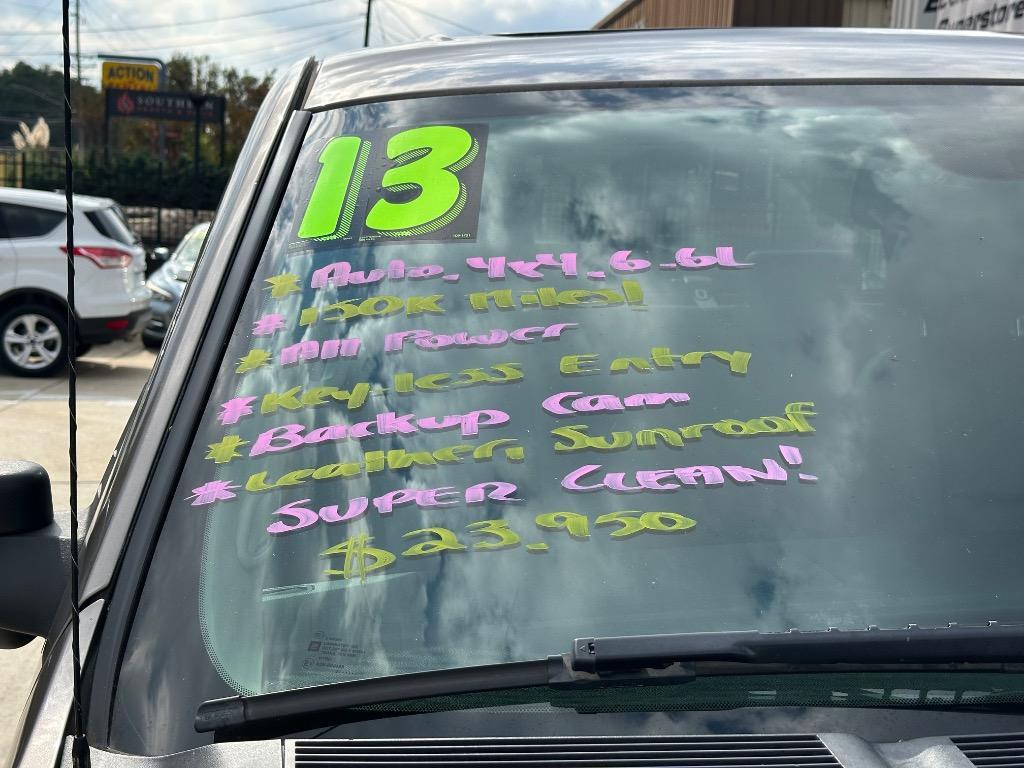 ACTION
SOUTHE
Superstore
13
* Auto. 4x4. 6.6L
* 150K Miles!
* All Power
* Key-less Entry
* Backup Cam
* Leather, Sunroof
SUPER CLEAN!
$23,950